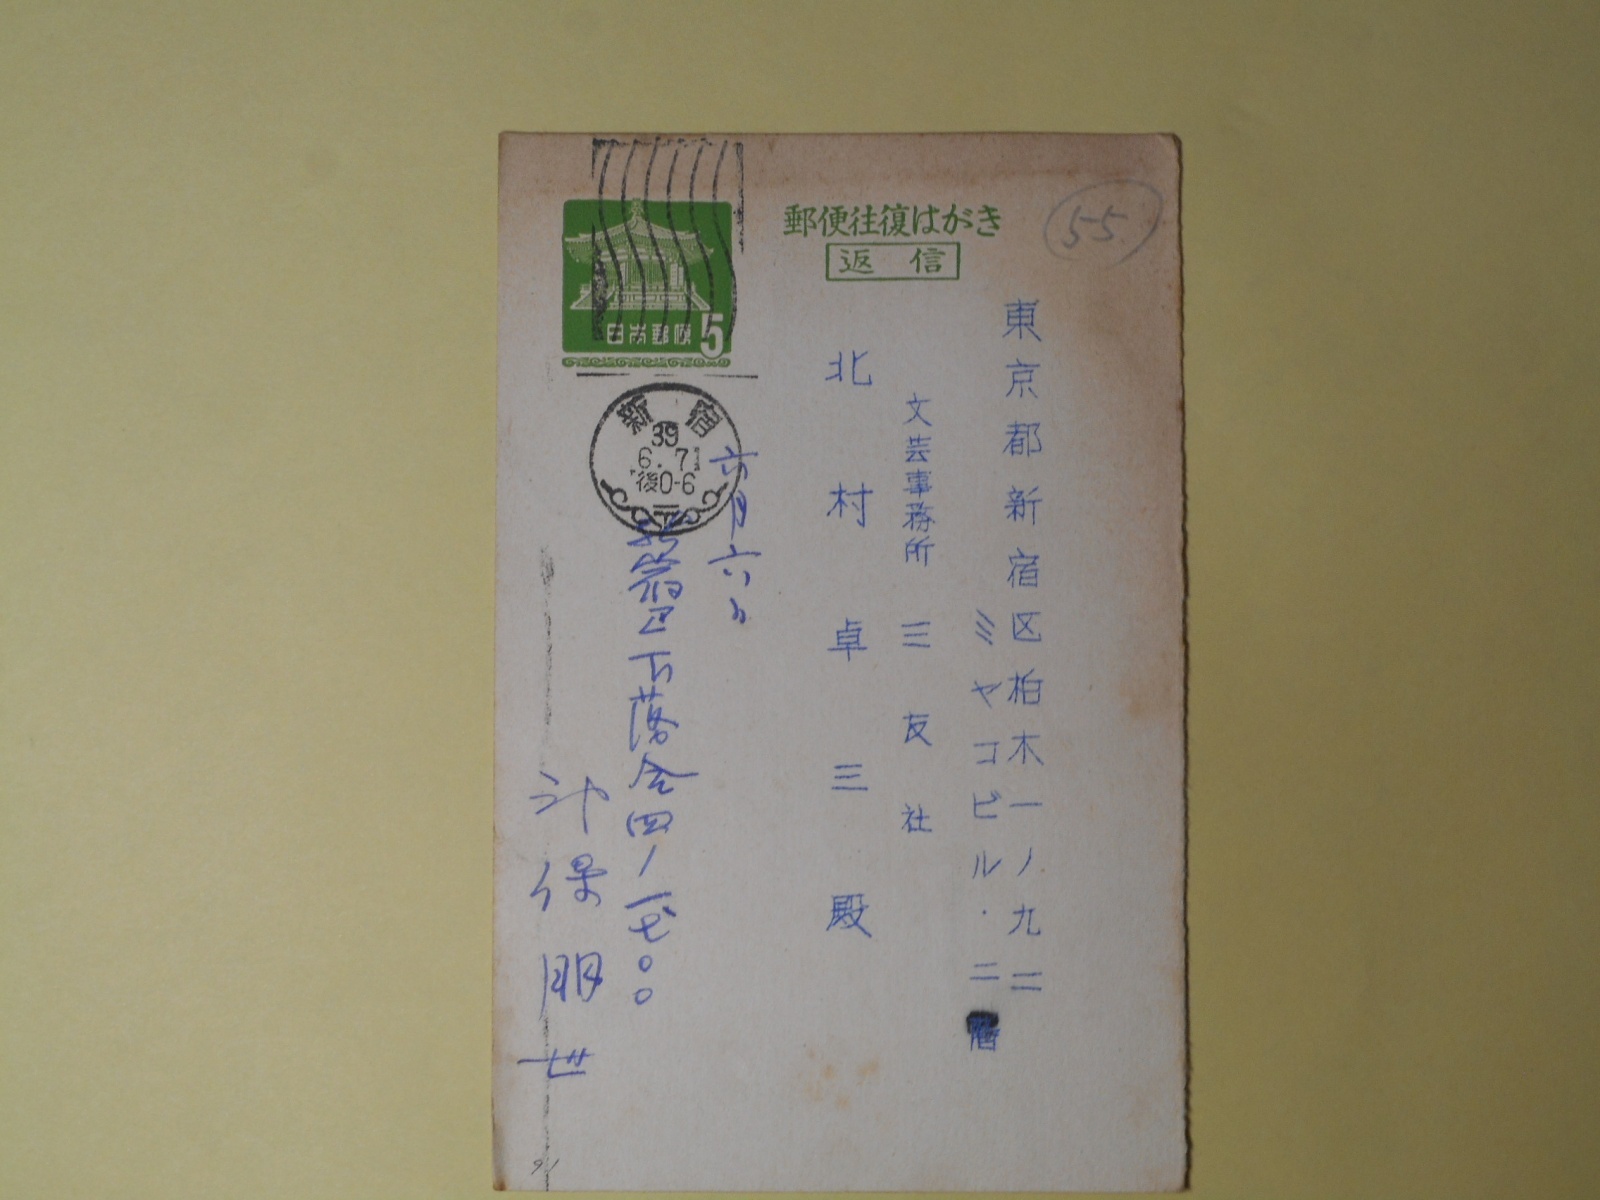 郵便往復はがき
返信
55
東京都新宿区柏木一ノ九二
ミヤコビル・二階
文芸事務所 三友社
北村卓三殿
日本郵便 5
新宿
39
6.7
後0-6
六月六日
新宿区下落合四ノ一七〇〇
神保朋世
91